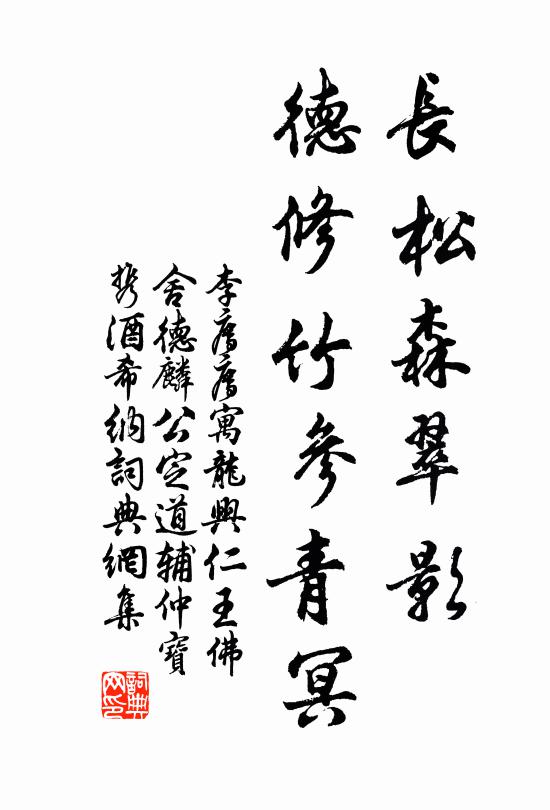 長松森翠影
德修竹參青冥
李廌廌寓龍興仁王佛
舍德麟公定道輔仲寶
携酒希納詞典網集
詞典网印